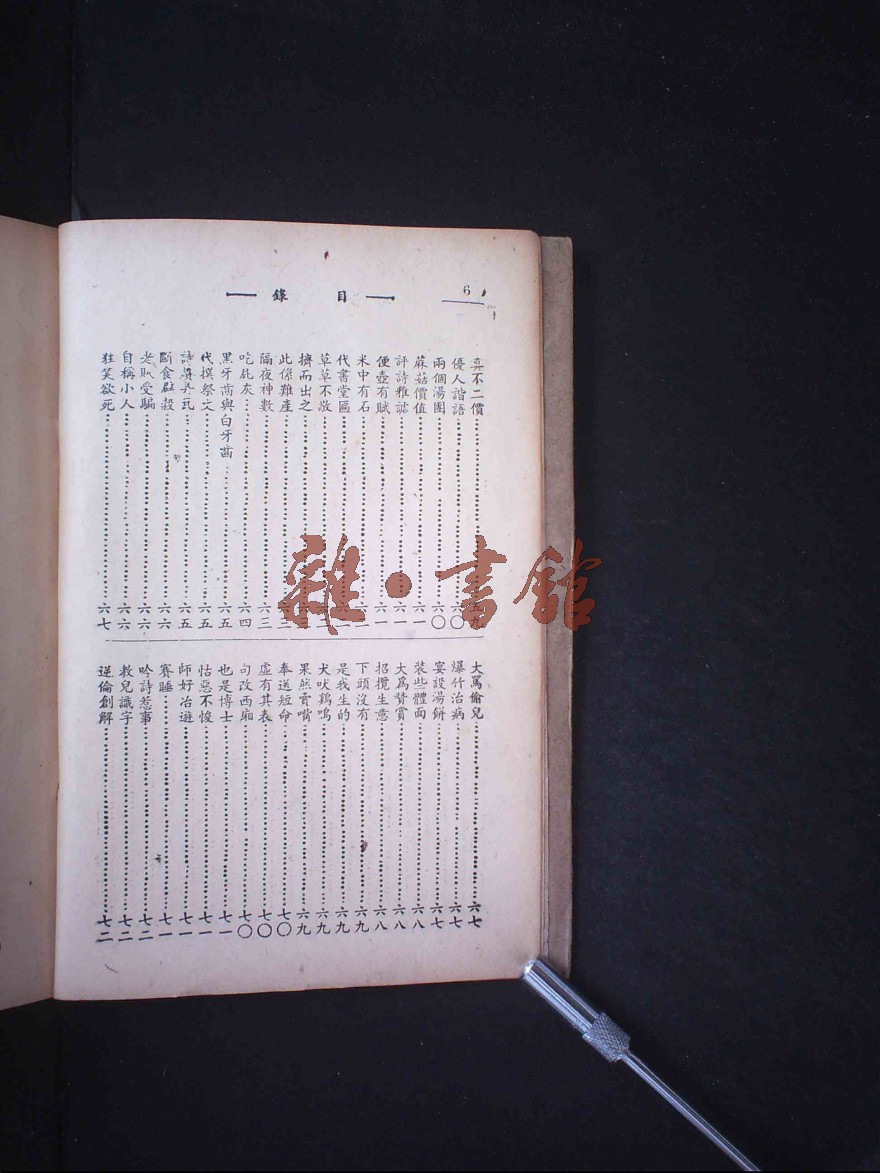 6
目錄
真不二價
優人諧語
兩個湯團 六〇
蔴菇價值 六一
評詩雅謔 六一
便壺有賦
米中有石
代書堂匾
草草不敬
擠而出之
此係難產
隔夜神數 六三
吃屁灰 六四
黑牙齒與白牙齒 六五
代撰祭文 六五
詩獎弄瓦 六五
斷食辟穀 六六
老飕受騙 六六
自稱小人 六六
狂笑欲死 六七
大罵偷兒 六七
爆竹治病 六七
宴設湯餅 六七
裝些體面 六八
大為贊賞 六八
招攬生意 六八
下頭沒有 六九
是我生的 六九
犬吠鷄鳴 六九
果然貢嘴 六九
奉送短命 七〇
虛有其表 七〇
句改西廂 七〇
也是博士 七一
怙惡不悛 七一
師好冶遊 七一
賽睡 七一
吟詩惹事 七二
教兒識字 七二
逆倫創解 七二
雜·書館